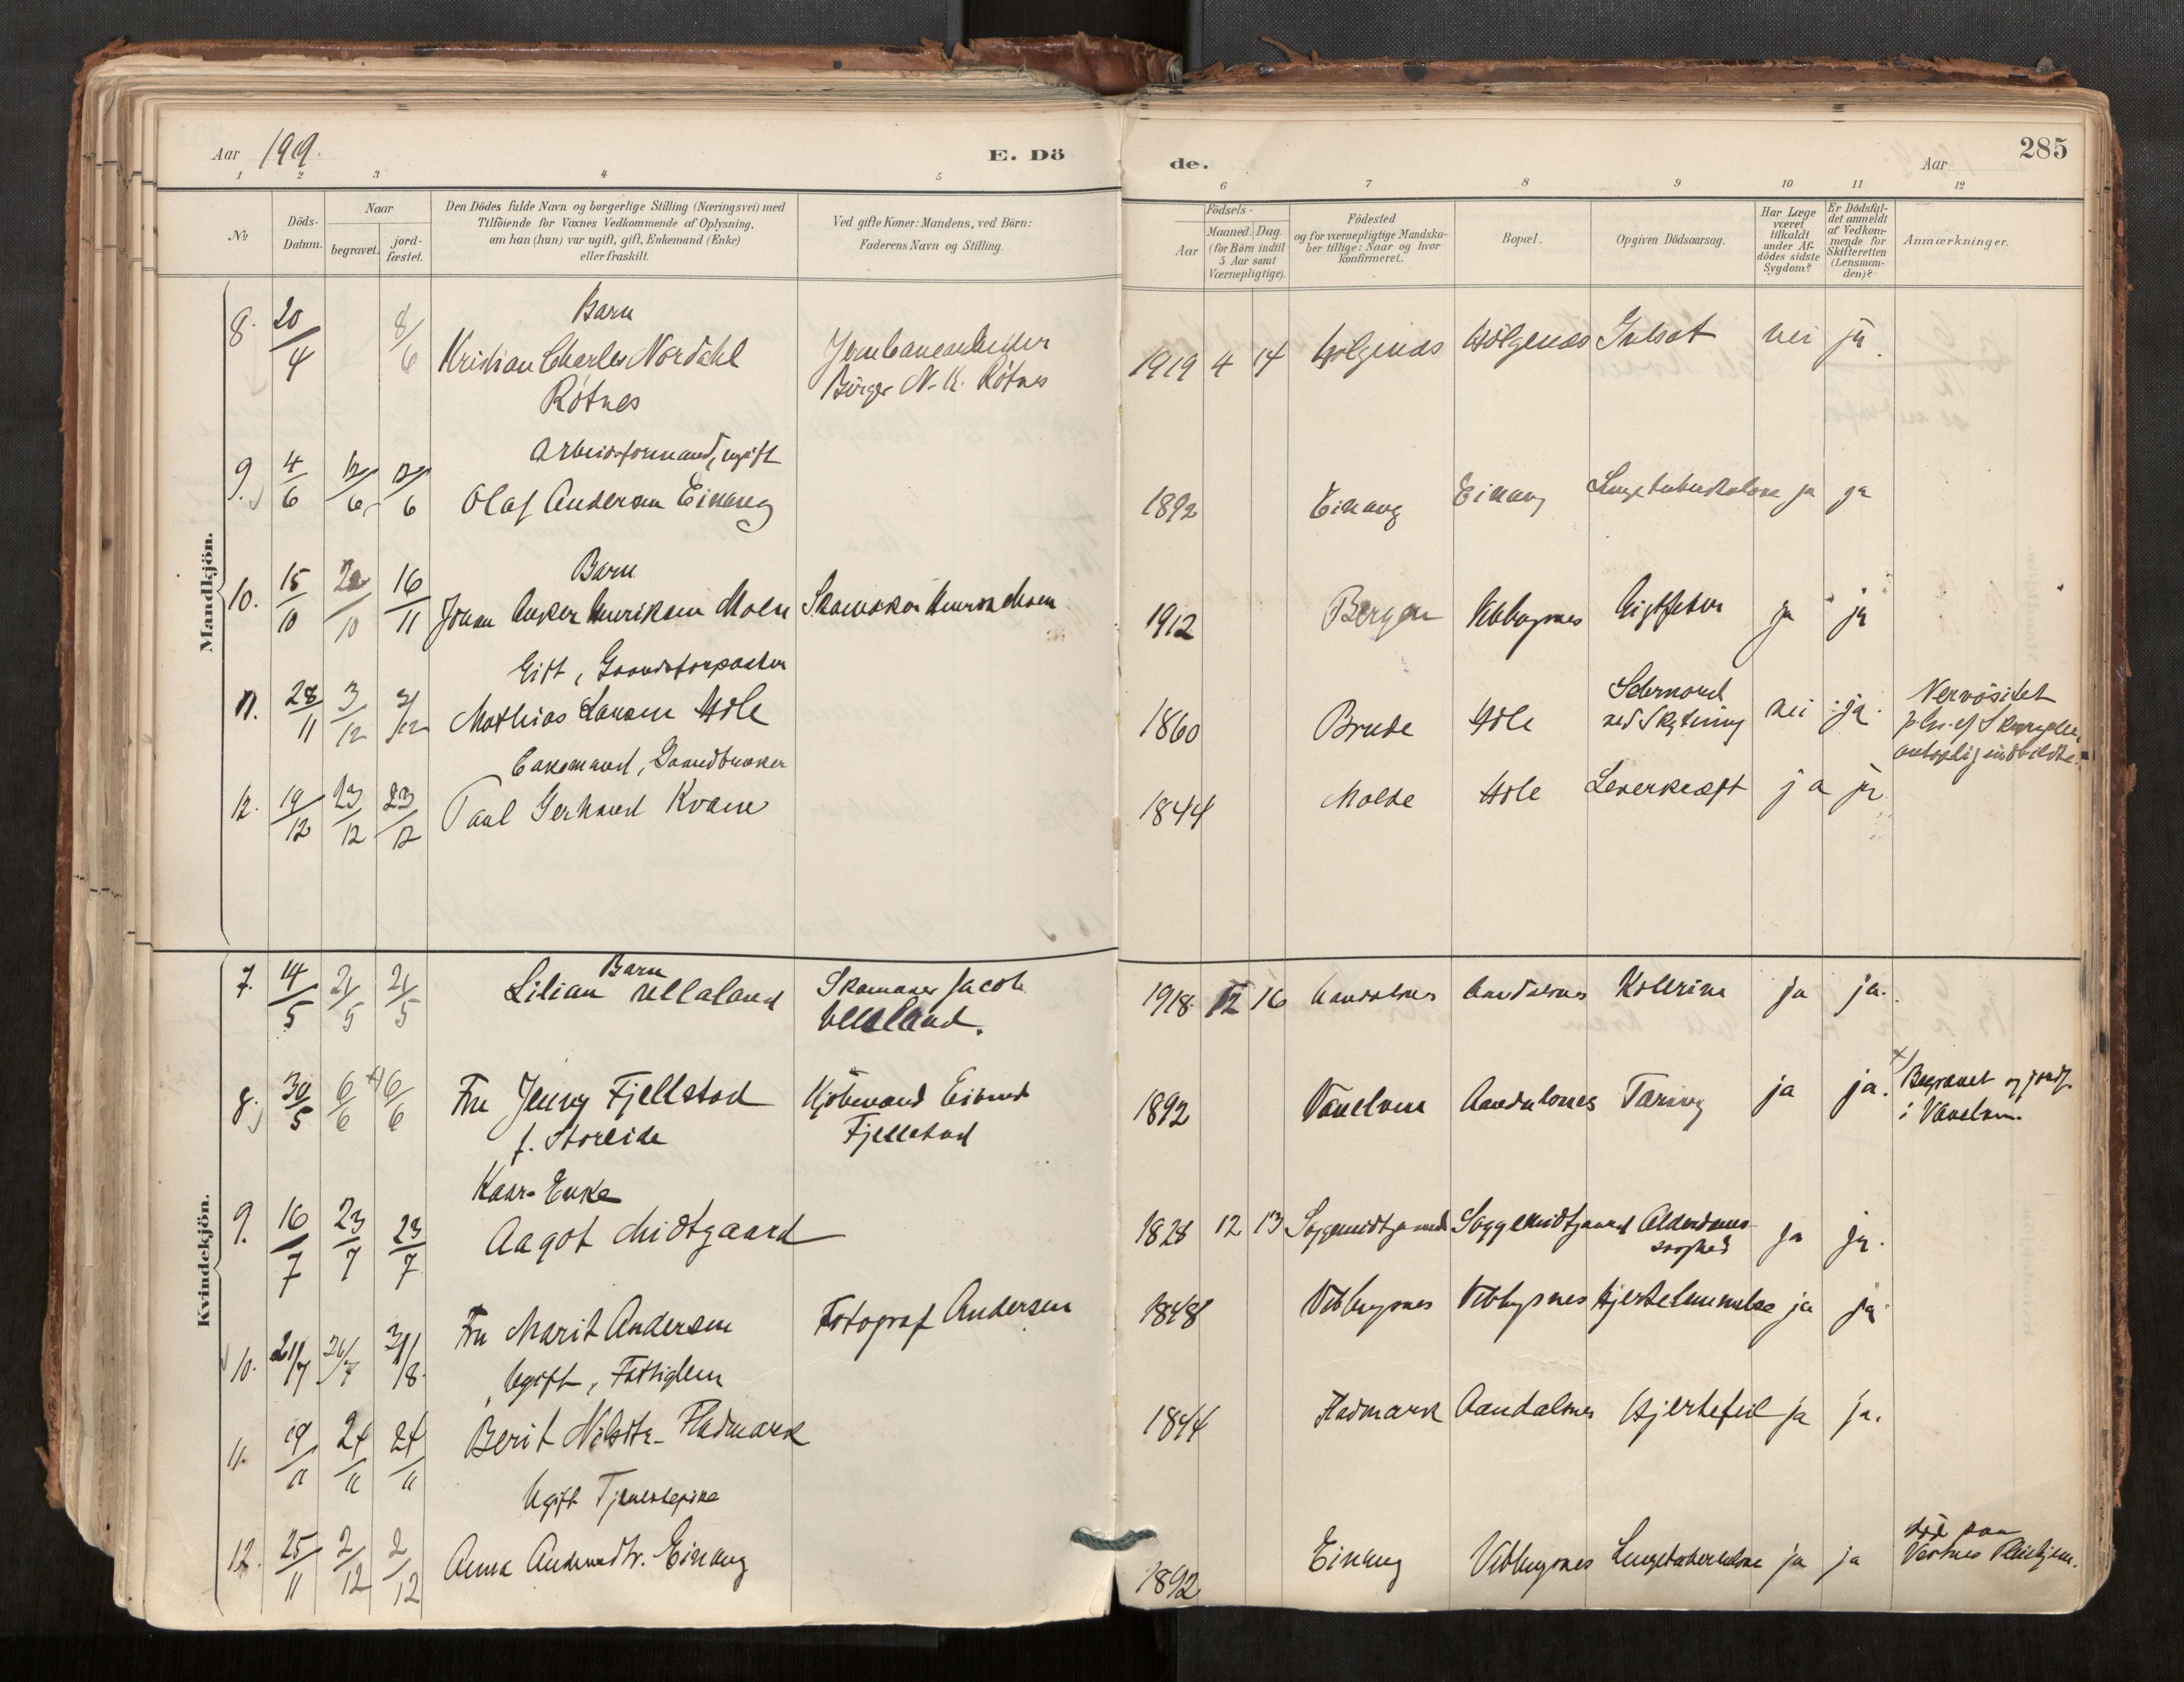 Aar 1919. E. Dö
de. Aar 285
1 2 3 4 5 6 7 8 9 10 11 12
№
Döds-
Datum.
Naar
begravet.
jord-
fæstet.
Den Dödes fulde Navn og borgerlige Stilling (Næringsvei) med
Tilföiende for Voxnes Vedkommende af Oplysning,
om han (hun) var ugift, gift, Enkemand (Enke)
eller fraskilt.
Ved gifte Koner: Mandens, ved Börn:
Faderens Navn og Stilling.
Födsels-
Aar
Maaned. Dag.
(for Börn indtil
5 Aar samt
Værnepligtige).
Födested
og for værnepligtige Mandska-
ber tillige: Naar og hvor
konfirmeret.
Bopæl.
Opgiven Dödsaarsag.
Har Læge
været
tilkaldt
under Af-
dödes sidste
Sygdom?
Er Dödsfal-
det anmeldt
af Vedkom-
mende for
Skifteretten
(Lensman-
den)?
Anmærkninger.
Mandkjön.
8. 20/4 8/6 Barn
Kristian Charles Nordahl
Rötnes
Jernbanearbeider
Börger N. K. Rötnes
1919 4 14 nei ja.
9. 4/6 12/6 12/6 Arbeidsformand, ugift
Olaf Andersen Einang
1892 Einang Einang Lungetuberkulose ja ja
10. 15/10 20/10 16/11 Barn
Johan Anker Henriksen Moen
1912 Bergen Veblungsnes Gigtfeber ja ja
11. 28/11 3/12 3/12 Gift, Gaardsforpagter
Mathias Larsen Hole
1860 Brude Hole Selvmord
ved Skytning nei ja.
Nervösitet
12. 19/12 23/12 23/12 Enkemand, Gaardbruker
Paul Gerhard Kvam
1844 Molde Hole Leverkræft ja ja
Kvindekjön.
7. 14/5 21/5 21/5 Barn
Lilian Ullaland
Skomaker Jacob
Ullaland.
1918 12 16 Aandalsnes Aandalsnes Kolerine ja ja.
8. 30/5 6/6 x) 6/6 Fru Jenny Fjellstad
f. Storeide
Kjöbmand Eivind
Fjellstad
1892 Vanelven Aandalsnes Tæring ja ja.
x) Begravet og jordf.
i Vanelven.
9. 16/7 23/7 23/7 Kaar-Enke
Aagot Midtgaard
1828 12 13 Soggemidtgaard Soggemidtgaard Alderdoms-
svaghed ja ja.
10. 21/7 26/7 31/8 Fru Marit Andersen
Fotograf Andersen
1848 Veblungsnes Veblungsnes Hjertelammelse ja ja
11. 19/11 24/11 24/11 Ugift, Fattiglem
Berit Nilsdtr. Fladmark
1844 Fladmark Aandalsnes Hjertefeil ja ja.
12. 25/11 2/12 2/12 Ugift Tjenestepike
Anna Andersdtr. Einang
1892 Einang Veblungsnes Lungetuberkulose ja ja
död paa
Vestnes Pleiehjem.